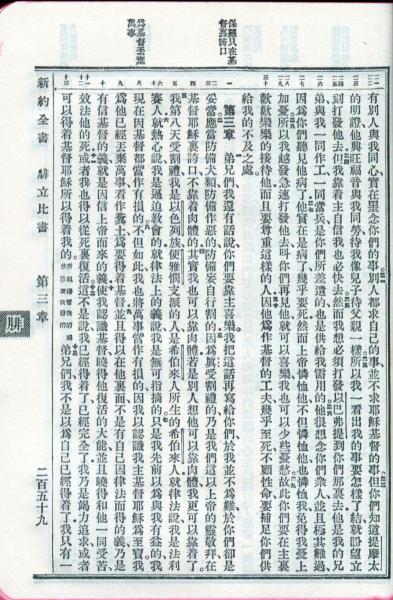 保羅只在基
督裏誇口
爲基督丟棄
萬事
有別人與我同心實在罣念你們的事別人都求自己的事並不求耶穌基督的事但你們知道提摩太
的明證他興旺福音與我同勞待我像兒子待父親一樣所以我一看出我的事要怎樣了結就盼望立
刻打發他去但我靠着主自信我也必快去然而我想必須打發以巴弗提到你們那裏去他是我的兄
弟與我一同作工一同當兵是你們所差遣的也是供給我需用的他很想念你們衆人並且極其難過
因爲你們聽見他病了他實在是病了幾乎要死然而上帝憐恤他不但憐恤他也憐恤我免得我憂上
加憂所以我越發急速打發他去叫你們再見他就可以喜樂我也可以少些憂愁故此你們要在主裏
歡歡樂樂的接待他而且要尊重這樣的人因他爲作基督的工夫幾乎至死不顧性命要補足你們供
給我的不及之處
第三章 弟兄們我還有話說你們要靠主喜樂我把這話再寫給你們於我並不爲難於你們卻是
妥當應當防備犬類防備作惡的防備妄自行割的因爲眞受割禮的乃是我們這以上帝的靈敬拜在
基督耶穌裏誇口不靠着肉體的其實我也可以靠肉體若是別人想他可以靠肉體我更可以靠着了
我第八天受割禮我是以色列族便雅憫支派的人是希伯來人所生的希伯來人就律法說我是法利
賽人就熱心說我是逼迫教會的就律法上的義說我是無可指摘的只是我先前以爲與我有益的我
現在因基督都當作有損的不但如此我也將萬事當作有損的因我以認識我主基督耶穌爲至寶我
爲他已經丟棄萬事看作糞土爲要得着基督並且得以在他裏面不是有自己因律法而得的義乃是
有信基督的義就是因信上帝而來的義使我認識基督曉得他復活的大能並且曉得和他一同受苦
效法他的死或者我也得以從死裏復活這不是說我已經得着了已經完全了我乃是竭力追求或者
可以得着基督耶穌所以得着我的 弟兄們我不是以爲自己已經得着了我只有一
新約全書 腓立比書 第三章 二百五十九
腓